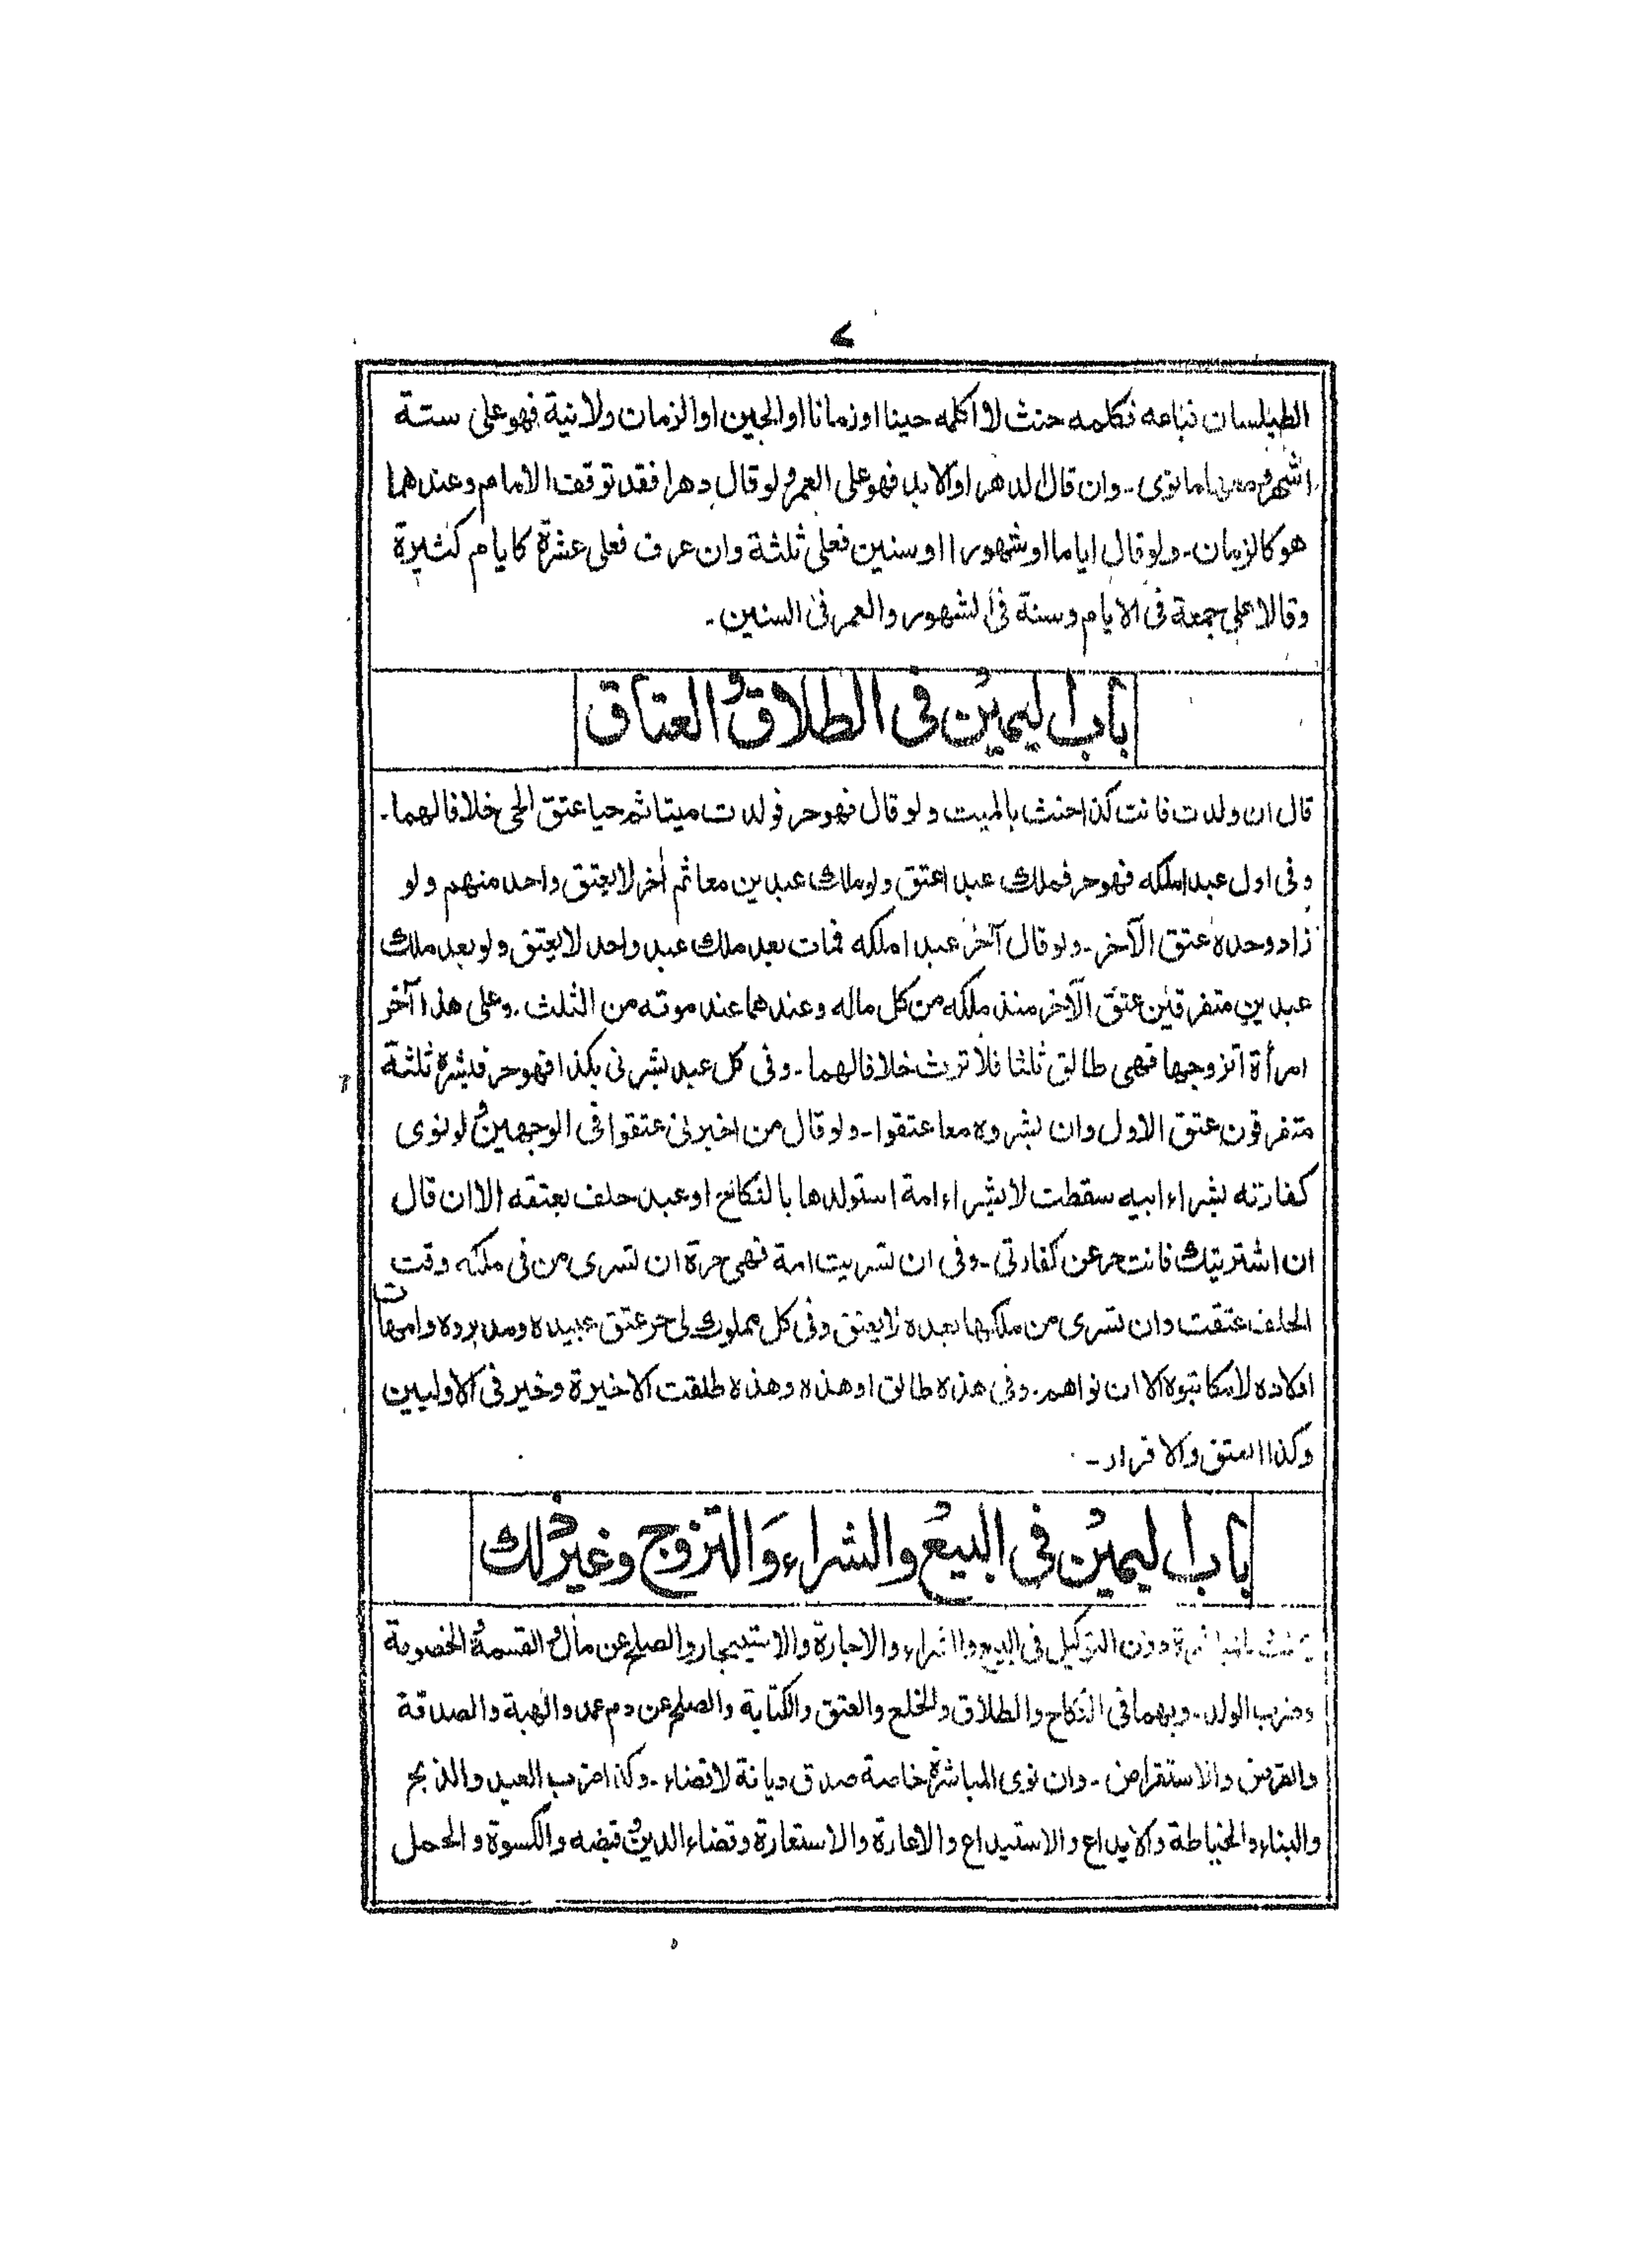 الطيلسان فباعه فكلمه حنث لا اكلمه حينا او زمانا او الحين او الزمان ولا نية فهو على ستة
اشهر ومعها ما نوى ـ وان قال الدهر او الابد فهو على العمر ولو قال دهرا فقد توقف الامام وعندهما
هو كالزمان ـ ولو قال اياما او شهورا او سنين فعلى ثلثة وان عرف فعلى عشرة كايام كثيرة
وقالا على جمعة فى الايام وسنة فى الشهور والعمر فى السنين ـ
باب اليمين فى الطلاق والعتاق
قال ان ولدت فانت كذا حنث بالميت ولو قال فهو حر فولدت ميتا ثم حيا عتق الحى خلافا لهما ـ
وفى اول عبد املكه فهو حر فملك عبدا عتق ولو ملك عبدين معا ثم أخر لا يعتق واحد منهم ولو
زاد وحده عتق الآخر ـ ولو قال آخر عبد املكه فمات بعد ملك عبد واحد لا يعتق ولو بعد ملك
عبدين متفرقين عتق الآخر منذ ملكه من كل ماله وعندهما عند موته من الثلث ـ وعلى هذا آخر
امرأة اتزوجها فهى طالق ثلثا فلا ترث خلافا لهما ـ وفى كل عبد بشرنى بكذا فهو حر فبشره ثلثة
متفرقون عتق الاول وان بشروه معا عتقوا ـ ولو قال من اخبرنى عتقوا فى الوجهين ولو نوى
كفارته بشراء ابيه سقطت لا بشراء امة استولدها بالنكاح او عبد حلف بعتقه الا ان قال
ان اشتريتك فانت حر عن كفارتى ـ وفى ان تسريت امة فهى حرة ان تسرى من فى ملكه وقت
الحلف عتقت وان تسرى من ملكها بعده لا يعتق وفى كل مملوك لى حر عتق عبيده ومدبروه وامهات
اولاده لا مكاتبوه الا ان نواهم ـ وفى هذه طالق او هذه وهذه طلقت الاخيرة وخير فى الاوليين
وكذا العتق والاقرار ـ
باب اليمين فى البيع والشراء والتزوج وغير ذلك
يحنث بالمباشرة دون التوكيل فى البيع والشراء والاجارة والاستيجار والصلح عن مال والقسمة والخصومة
وضرب الولد ـ وبهما فى النكاح والطلاق والخلع والعتق والكتابة والصلح عن دم عمد والهبة والصدقة
والقرض والاستقراض ـ وان نوى المباشرة خاصة صدق ديانة لا قضاء ـ وكذا ضرب العبد والذبح
والبناء والخياطة والايداع والاستيداع والاعارة والاستعارة وقضاء الدين وقبضه والكسوة والحمل